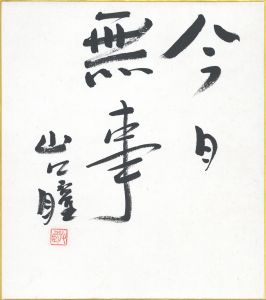 今日
無事
山口瞳